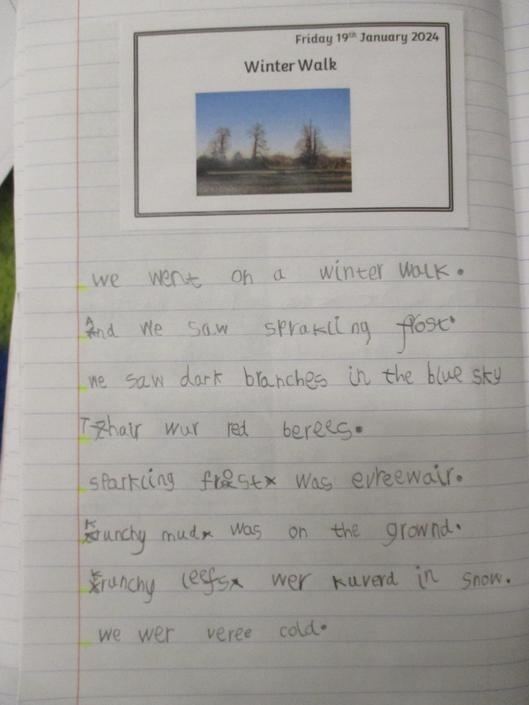 Friday 19th January 2024
Winter Walk
we went on a winter walk.
And we saw sprakling frost.
we saw dark branches in the blue sky
Thair wur red berees.
sparkling frost was evreewair.
Krunchy mud was on the grownd.
Krunchy leefs wer kuverd in snow.
we wer veree cold.